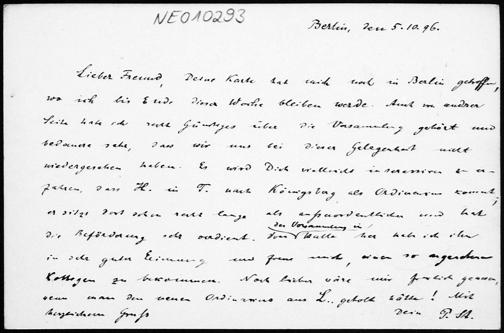 NE010293
Berlin, den 5.10.96.
Lieber Freund, Deine Karte hat mich noch in Berlin getroffen,
wo ich bis Ende dieser Woche bleiben werde. Auch von andrer
Seite habe ich recht Günstiges über die Versammlung gehört und
bedaure sehr, dass wir uns bei dieser Gelegenheit nicht
wiedergesehen haben. Es wird Dich vielleicht interessieren zu er-
fahren, dass H. in T. nach Königsberg als Ordinarius kommt,
er sitzt dort schon recht lange als und hat
die Beförderung sehr verdient. Von
der Versammlung in
Halle her habe ich ihn
in sehr guter Erinnerung und freue mich, einen so angenehmen
Kollegen zu bekommen. Noch lieber wäre mir freilich gewesen,
wenn man den neuen Ordinarius aus L. geholt hätte! Mit
herzlichem Gruss Dein P. St.